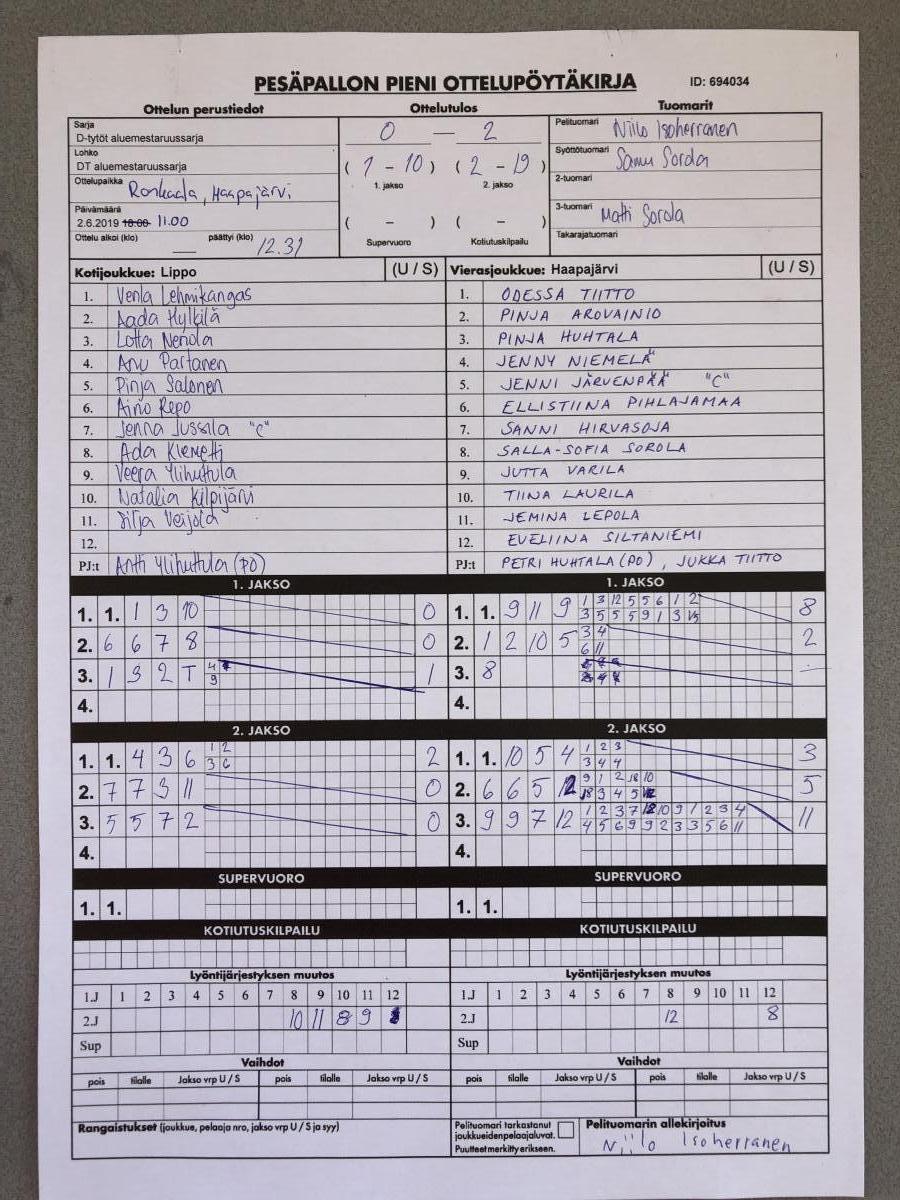 PESÄPALLON PIENI OTTELUPÖYTÄKIRJA
ID: 694034
Ottelun perustiedot
Sarja
D-tytöt aluemestaruussarja
Lohko
DT aluemestaruussarja
Ottelupaikka Ronkaala, Haapajärvi
Päivämäärä
2.6.2019 18:00 11.00
Ottelu alkoi (klo) — päättyi (klo) 12.31
Ottelutulos
0 — 2
(1 - 10) (2 - 19)
1. jakso 2. jakso
( - ) ( - )
Supervuoro Kotiutuskilpailu
Tuomarit
Pelituomari Niilo Isoherranen
Syöttötuomari Samu Sorola
2-tuomari
3-tuomari Matti Sorola
Takarajatuomari
Kotijoukkue: Lippo (U / S)
1. Venla Lehmikangas
2. Aada Hylkilä
3. Lotta Nenola
4. Anu Partanen
5. Pinja Salonen
6. Aino Repo
7. Jenna Jussila "C"
8. Ada Klemetti
9. Veera Ylihuttula
10. Natalia Kilpijärvi
11. Silja Veijola
12.
PJ:t Antti Ylihuttula (PO)
Vierasjoukkue: Haapajärvi (U / S)
1. ODESSA TIITTO
2. PINJA AROVAINIO
3. PINJA HUHTALA
4. JENNY NIEMELÄ
5. JENNI JÄRVENPÄÄ "C"
6. ELLISTIINA PIHLAJAMAA
7. SANNI HIRVASOJA
8. SALLA-SOFIA SOROLA
9. JUTTA VARILA
10. TIINA LAURILA
11. JEMINA LEPOLA
12. EVELIINA SILTANIEMI
PJ:t PETRI HUHTALA (PO), JUKKA TIITTO
1. JAKSO
1. 1. 1 3 10 0
2. 6 6 7 8 0
3. 1 3 2 T 4
9 1
4.
2. JAKSO
1. 1. 4 3 6 1 2
3 6 2
2. 7 7 3 11 0
3. 5 5 7 2 0
4.
SUPERVUORO
1. 1.
KOTIUTUSKILPAILU
1. JAKSO
1. 1. 9 11 9 1 3 12 5 5 6 1 2
3 5 5 5 9 1 3 8
2. 1 2 10 5 3 4
6 11 2
3. 8
4.
2. JAKSO
1. 1. 10 5 4 1 2 3
3 4 4 3
2. 6 6 5 12 9 1 2 10
3 4 5 5
3. 9 9 7 12 1 2 3 7 12 10 9 1 2 3 4
4 5 6 9 9 2 3 3 5 6 11 11
4.
SUPERVUORO
1. 1.
KOTIUTUSKILPAILU
Lyöntijärjestyksen muutos
1.J 1 2 3 4 5 6 7 8 9 10 11 12
2.J 10 11 8 9
Sup
Vaihdot
pois tilalle Jakso vrp U / S pois tilalle Jakso vrp U / S
Lyöntijärjestyksen muutos
1.J 1 2 3 4 5 6 7 8 9 10 11 12
2.J 12 8
Sup
Vaihdot
pois tilalle Jakso vrp U / S pois tilalle Jakso vrp U / S
Rangaistukset (joukkue, pelaaja nro, jakso vrp U / S ja syy)
Pelituomari tarkastanut
joukkueidenpelaajaluvat.
Puutteet merkitty erikseen.
Pelituomarin allekirjoitus
Niilo Isoherranen